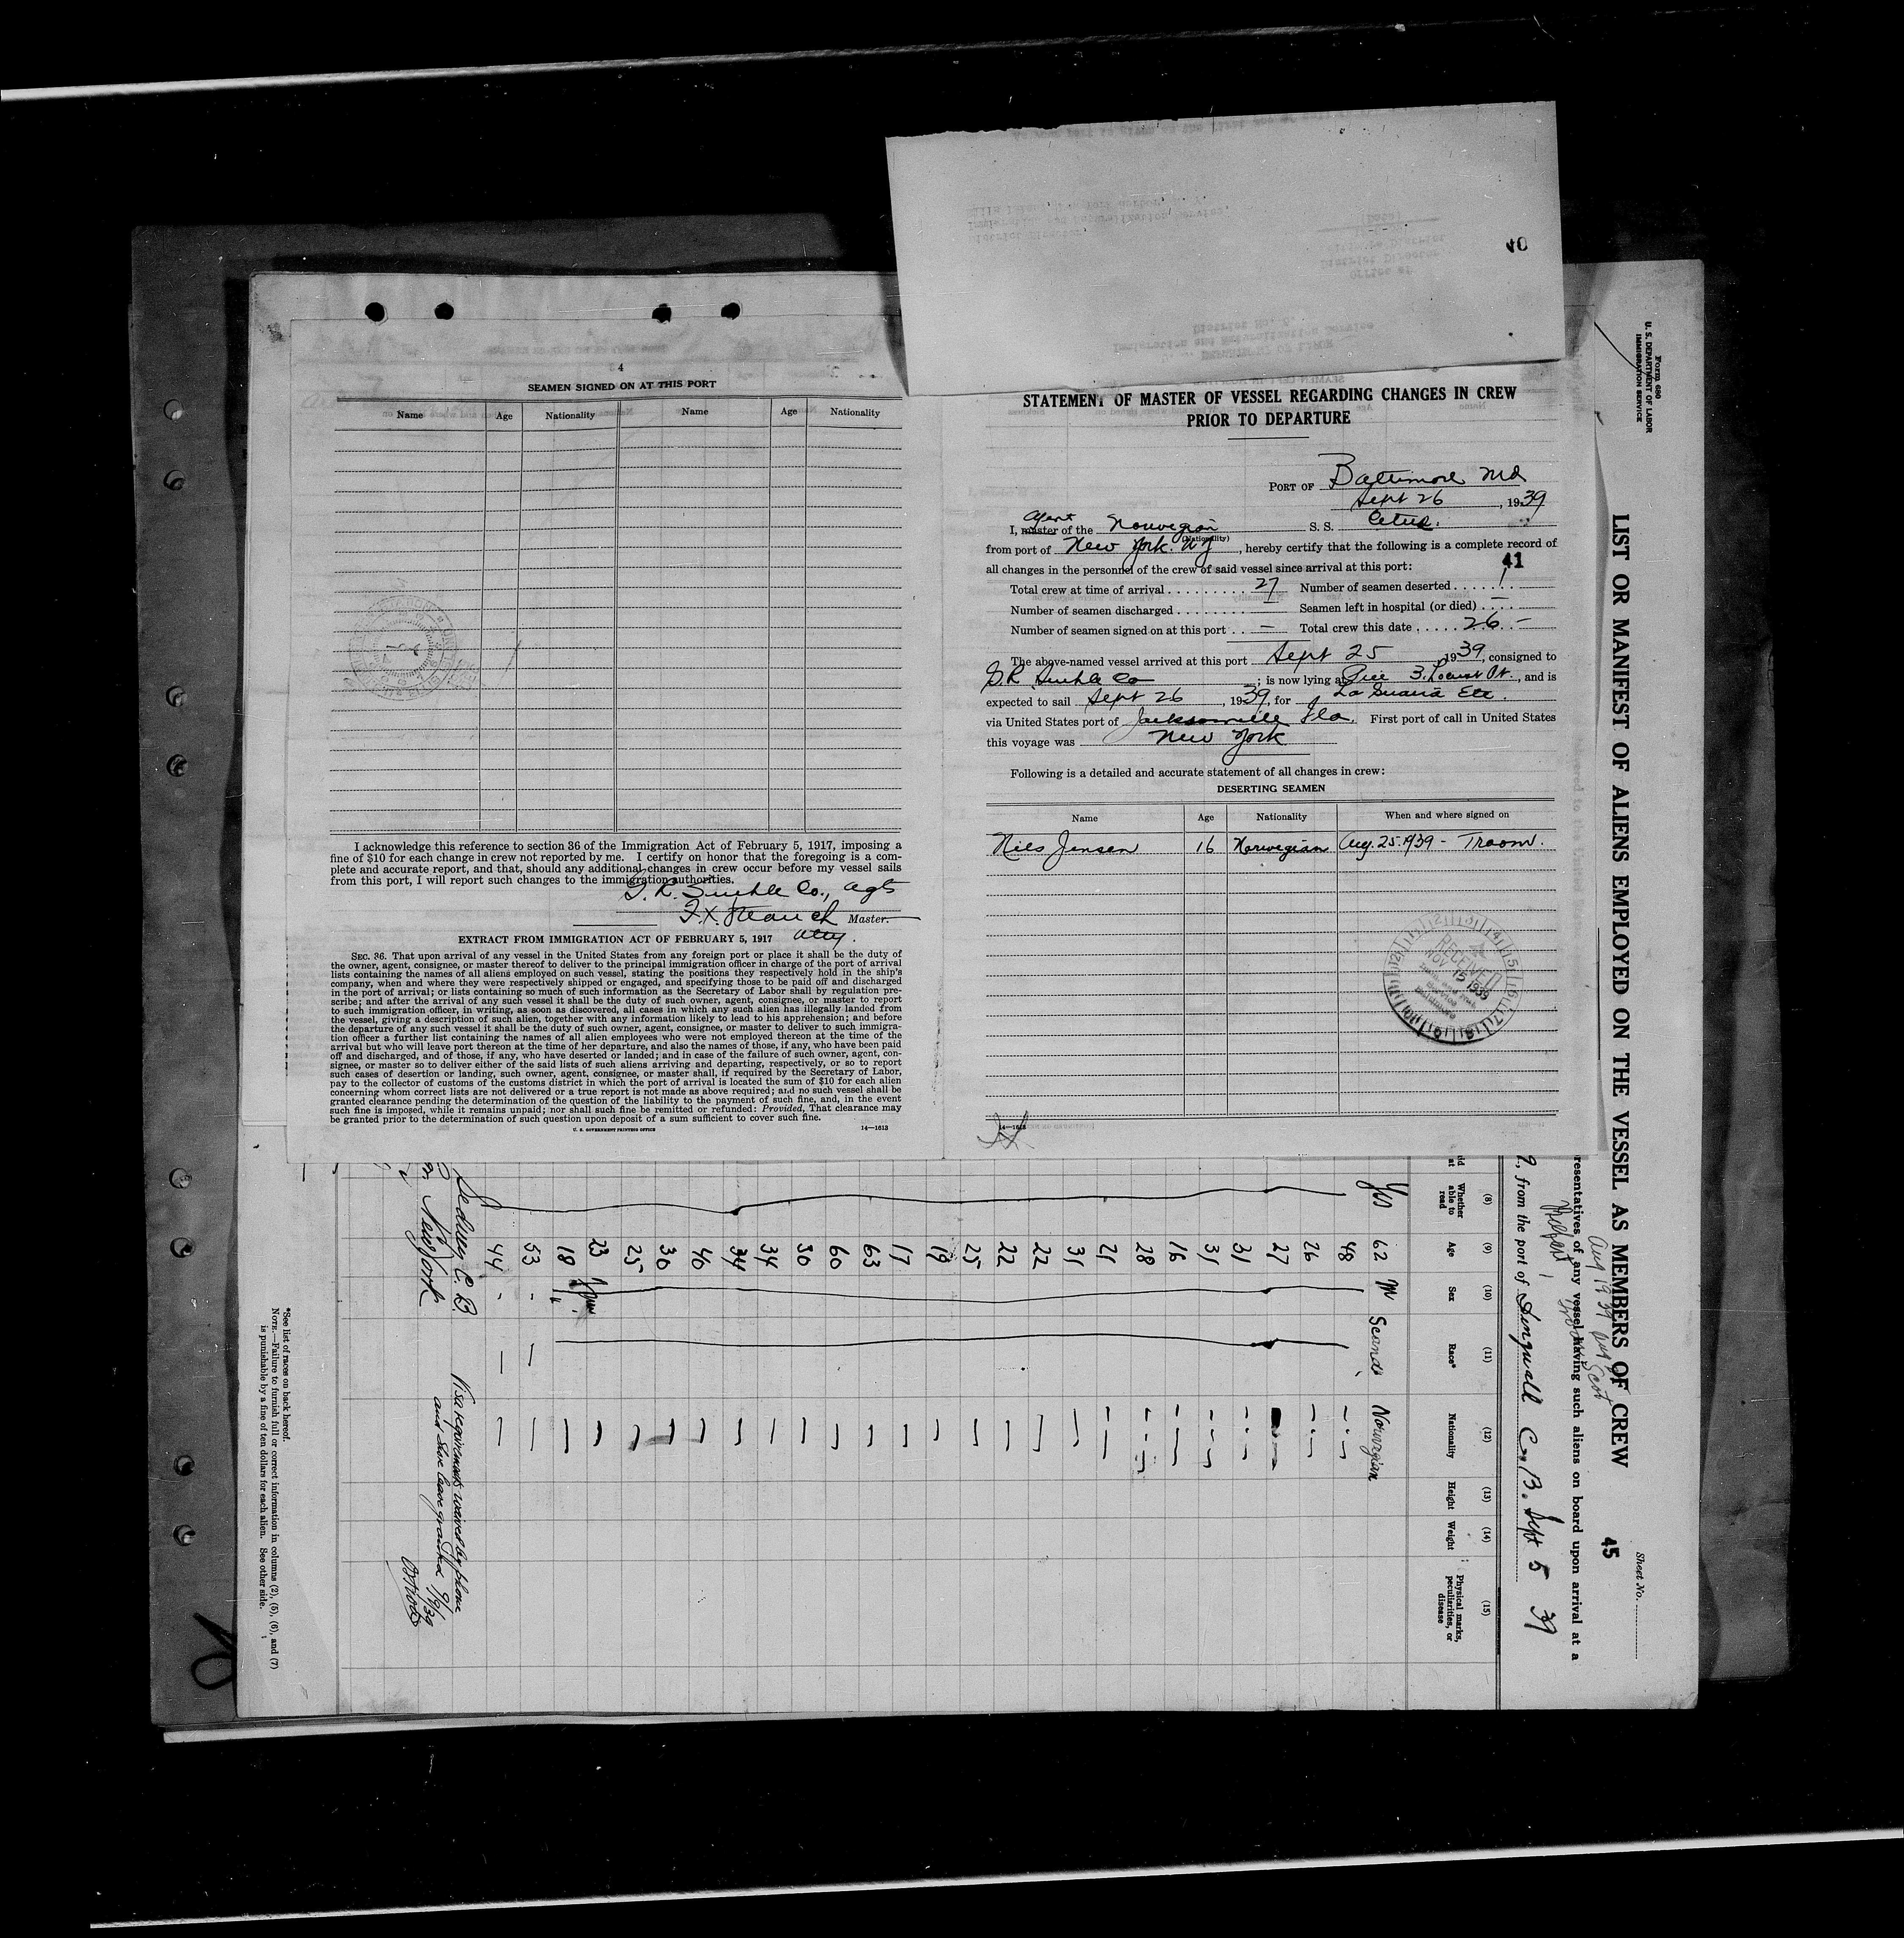 40
4
SEAMEN SIGNED ON AT THIS PORT
Name Age Nationality Name Age Nationality
I acknowledge this reference to section 36 of the Immigration Act of February 5, 1917, imposing a
fine of $10 for each change in crew not reported by me. I certify on honor that the foregoing is a com-
plete and accurate report, and that, should any additional changes in crew occur before my vessel sails
from this port, I will report such changes to the immigration authorities.
Co., agts
F. X. Master.
atty.
EXTRACT FROM IMMIGRATION ACT OF FEBRUARY 5, 1917
SEC. 36. That upon arrival of any vessel in the United States from any foreign port or place it shall be the duty of
the owner, agent, consignee, or master thereof to deliver to the principal immigration officer in charge of the port of arrival
lists containing the names of all aliens employed on such vessel, stating the positions they respectively hold in the ship's
company, when and where they were respectively shipped or engaged, and specifying those to be paid off and discharged
in the port of arrival; or lists containing so much of such information as the Secretary of Labor shall by regulation pre-
scribe; and after the arrival of any such vessel it shall be the duty of such owner, agent, consignee, or master to report
to such immigration officer, in writing, as soon as discovered, all cases in which any such alien has illegally landed from
the vessel, giving a description of such alien, together with any information likely to lead to his apprehension; and before
the departure of any such vessel it shall be the duty of such owner, agent, consignee, or master to deliver to such immigra-
tion officer a further list containing the names of all alien employees who were not employed thereon at the time of the
arrival but who will leave port thereon at the time of her departure, and also the names of those, if any, who have been paid
off and discharged, and of those, if any, who have deserted or landed; and in case of the failure of such owner, agent, con-
signee, or master so to deliver either of the said lists of such aliens arriving and departing, respectively, or so to report
such cases of desertion or landing, such owner, agent, consignee, or master shall, if required by the Secretary of Labor,
pay to the collector of customs of the customs district in which the port of arrival is located the sum of $10 for each alien
concerning whom correct lists are not delivered or a true report is not made as above required; and no such vessel shall be
granted clearance pending the determination of the question of the liability to the payment of such fine, and, in the event
such fine is imposed, while it remains unpaid; nor shall such fine be remitted or refunded: Provided, That clearance may
be granted prior to the determination of such question upon deposit of a sum sufficient to cover such fine.
U. S. GOVERNMENT PRINTING OFFICE 14—1613
STATEMENT OF MASTER OF VESSEL REGARDING CHANGES IN CREW
PRIOR TO DEPARTURE
PORT OF Baltimore Md
Sept 26, 1939
Agent
I, master of the Norwegian S. S. Cetus.
(Nationality)
from port of New York. NY, hereby certify that the following is a complete record of
all changes in the personnel of the crew of said vessel since arrival at this port:
41
Total crew at time of arrival 27 Number of seamen deserted 1
Number of seamen discharged — Seamen left in hospital (or died) —
Number of seamen signed on at this port — Total crew this date 26 —
The above-named vessel arrived at this port Sept 25 1939, consigned to
Co; is now lying at Pier 3. Locust Pt., and is
expected to sail Sept 26, 1939, for La Guaria Etc.
via United States port of Jacksonville Fla. First port of call in United States
this voyage was New York
Following is a detailed and accurate statement of all changes in crew:
DESERTING SEAMEN
Name Age Nationality When and where signed on
Nils Jensen 16 Norwegian Aug. 25. 1939 - Traom.
RECEIVED
NOV 15 1939
Baltimore
14—1613
Form 680
U. S. DEPARTMENT OF LABOR
IMMIGRATION SERVICE
LIST OR MANIFEST OF ALIENS EMPLOYED ON THE VESSEL AS MEMBERS OF CREW
Sheet No.
45
resentatives of any vessel having such aliens on board upon arrival at a
9, from the port of C. B. Sept 5 39
(8) (9) (10) (11) (12) (13) (14) (15)
Whether able to read Age Sex Race* Nationality Height Weight Physical marks, peculiarities, or disease
Yes 62 M Scand. Norwegian
48
26
27
31
31
16
28
21
31
22
22
25
19
17
63
60
50
34
34
40
30
25
23
18
53
44
Sedney C. B.
New York
Visa requirements waived by phone
and shore leave granted 9/9/39
*See list of races on back hereof.
NOTE.—Failure to furnish full or correct information in columns (2), (5), (6), and (7)
is punishable by a fine of ten dollars for each alien. See other side.